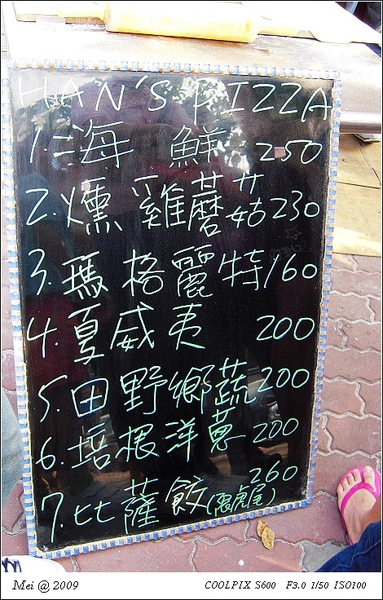 HAN'S PIZZA
1. 海鮮 250
2. 燻雞蘑菇 230
3. 瑪格麗特 160
4. 夏威夷 200
5. 田野鄉蔬 200
6. 培根洋蔥 200
7. 比薩餃 260
Mei @ 2009 COOLPIX S600 F3.0 1/50 ISO100